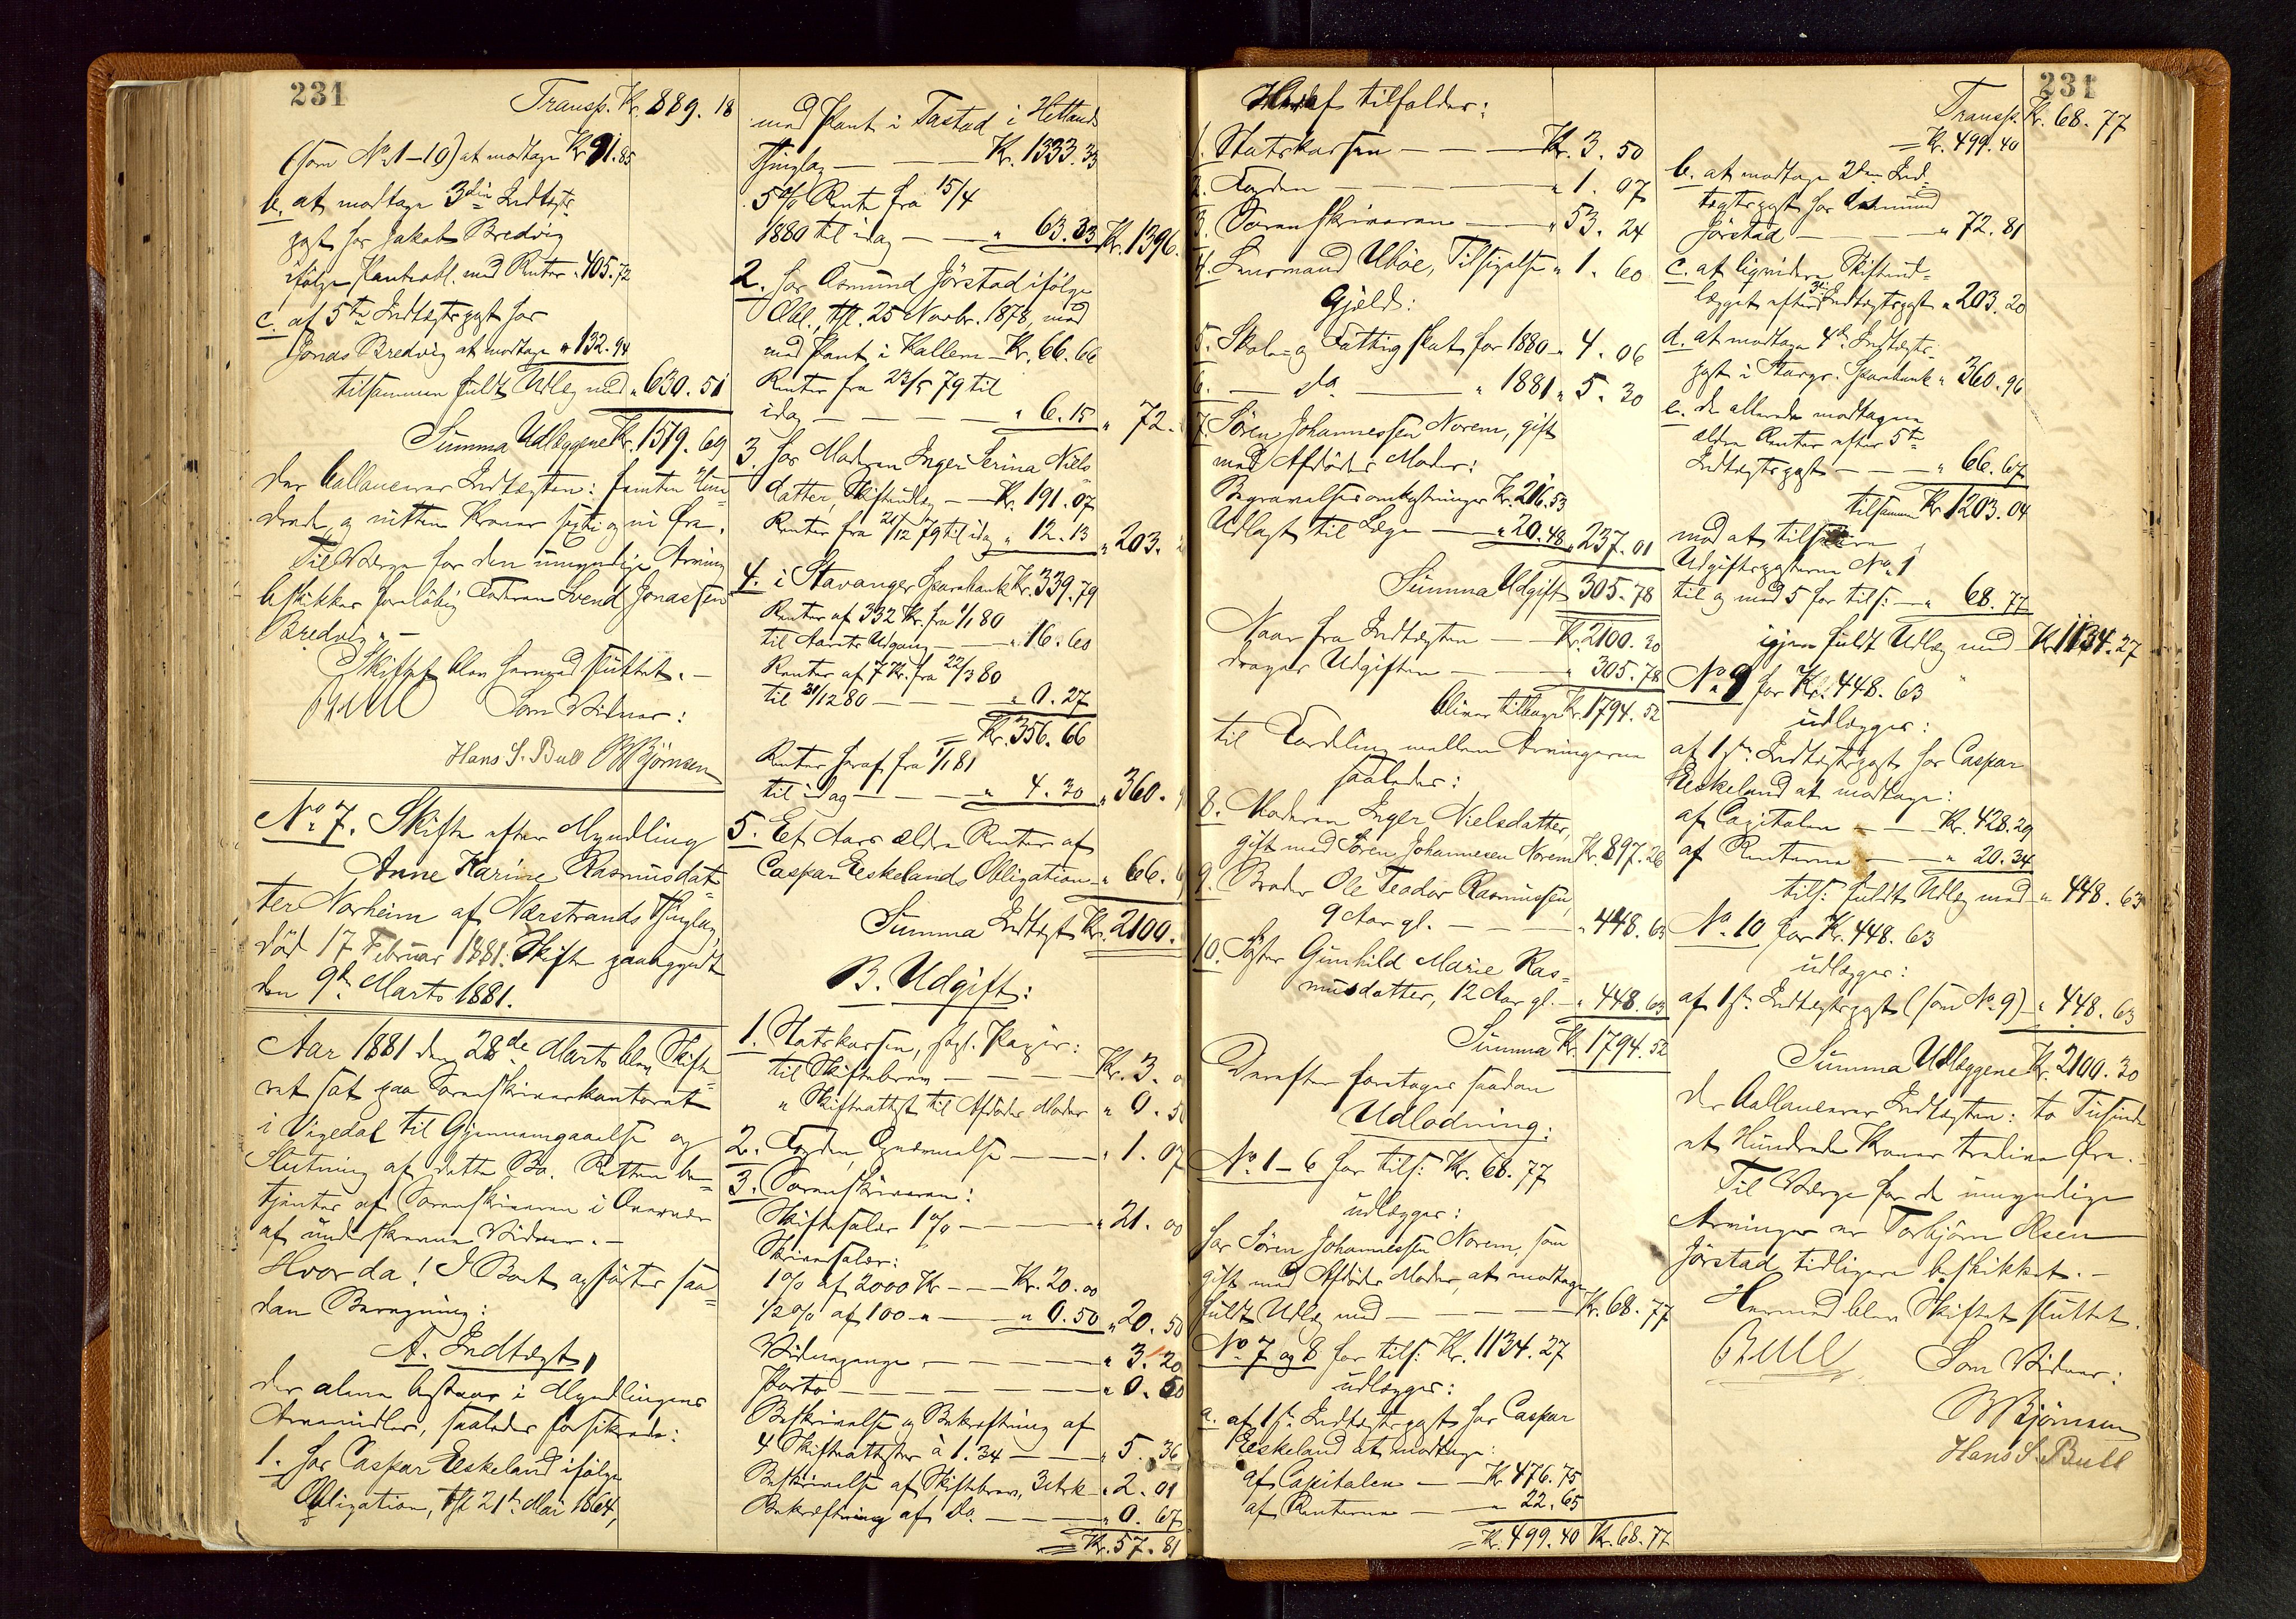 231
Transp. Kr. 889. 18
(som No 1-10) at modtage Kr. 91.85
b. at modtage 3die Indtægts-
post hos Jakob Bredvig
ifølge Panteobl. med Renter " 405.72
c. af 5te Indtægtspost hos
Jonas Bredvig at modtage " 132.94
tilsammen fuldt Udlæg med " 630. 51
Summa Udlæggene Kr. 1519. 69
der ballancerer Indtægten: femten Hun-
drede og nitten Kroner sexti og ni Øre.
Til Værge for den umyndige Arving
beskikkes foreløbig Fatteren Svend Jonassen
Bredvig. -
Skiftet blev hermed sluttet. -
Bull Som Vidner:
Hans S. Bull Bjørnsen
No 7. Skifte efter Myndling
Anne Karine Rasmusdat-
ter Norheim af Nærstrands Thinglag
død 17 Februar 1881. Skifte paabegyndt
den 9de Marts 1881.
Aar 1881 den 28de Marts blev Skifte-
ret sat paa Sorenskriverkontoret
i Vigedal til Gjennemgaaelse og
Slutning af dette Bo. Retten be-
tjentes af Sorenskriveren i Overvær
af underskrevne Vidner. -
Hvorda! I Boet opførtes saa-
dan Beregning:
A. Indtægt,
der alene bestaar i Myndlingens
Arvemidler, saaledes forsikrede:
1. hos Caspar Eskeland ifølge
Obligation, thl 21de Mai 1864,
med Pant i Tastad i Hetlands
Thinglag - - Kr. 1333.33
5% Rente fra 15/4
1880 til idag - " 63.33 Kr. 1396.
2. hos Osmund Jörstad ifølge
Obl., thl. 25 Novbr. 1878, med
med Pant i Kallem - Kr. 66.66
Renter fra 23/5 79 til
idag - - - " 6.15 " 72.
3. hos Moderen Inger Serina Niels-
datter, Skifteudlæg - Kr. 191.07
Renter fra 21/12 79 til idag " 12.13 " 203.
4. i Stavanger Sparebank Kr. 339.79
Renter af 332 Kr. fra 1/1 80
til Aarets Udgang - " 16.60
Renter af 7 Kr. fra 22/3 80
til 31/12 80 - - - " 0.27
= Kr. 356.66
Renter heraf fra 1/1 81
til idag - - - " 4.30 " 360.
5. Et Aars ældre Renter af
Caspar Eskelands Obligation " 66.
Summa Indtægt Kr. 2100.
B. Udgift:
1. Statskassen, stpl. Papir:
til Skiftebrev - - - Kr. 3.
" Skifteattest til Afdødes Moder " 0. 50
2. Fogden, Gjennemelse - - " 1. 07
3. Sorenskriveren:
Skiftesalær 1% - - - " 21. 00
Skrivesalær:
1% af 2000 Kr - - Kr. 20.00
1/2% af 100 - " - " 0.50 " 20. 50
Vidnepenge - - - " 3. 20
Porto - - - " 0. 50
Beskrivelse og Bekræftning af
4 Skifteattester à 1.34 - - " 5. 36
Beskrivelse af Skiftebrev, 3 Ark - " 2. 01
Bekræftning af do. - - " 0. 67
= Kr. 57. 81
231
Heraf tilfalder:
1. Statskassen - - - Kr. 3. 50
2. Fogden - - - " 1. 07
3. Sorenskriveren - - " 53. 24
4. Lensmand Ubøe, Tilsigelse " 1. 60
Gjeld:
5. Skole- og Fattigskat for 1880 - " 4. 06
6. - do. - " 1881 " 5. 30
7. Sören Johannessen Norem, gift
med Afdødes Moder:
Begravelsesomkostninger Kr. 216.53
Udlagt til Læge - " 20.48 " 237. 01
Summa Udgift 305. 78
Naar fra Indtægten - Kr. 2100. 30
drages Udgiften - - " 305. 78
bliver tilbage Kr. 1794. 52
til Fordeling mellem Arvingerne
saaledes:
8. Moderen Inger Nielsdatter,
gift med Sören Johannesen Norem Kr. 897. 26
9. Broder Ole Teodor Rasmussen,
9 Aar gl. - - - " 448. 63
10. Søster Gunhild Marie Ras-
musdatter, 12 Aar gl. - " 448. 63
Summa Kr. 1794. 52
Derefter foretages saadan
Udlodning:
No 1-6 for tils: Kr. 68. 77
udlægges:
hos Sören Johannessen Norem, som
gift med Afdødes Moder, at modtage
fuldt Udlæg med - - - Kr. 68. 77
No 7 og 8 for tils: Kr. 1134. 27
udlægges:
a. af 1ste Indtægtspost hos Caspar
Eskeland at modtage:
af Capitalen - - Kr. 476.75
af Renterne - - " 22.65
= Kr. 499.40 Kr. 68. 77
Transp. Kr. 68. 77
= Kr. 499.40
b. at modtage 2den Ind-
tægtspost hos Osmund
Jörstad - - - " 72. 81
c. at liqvidere Skifteud-
lægget efter 3die Indtægtspost " 203. 20
d. at modtage 4de Indtægts-
post i Stavgr. Sparebank " 360. 96
e. de allerede modtagne
ældre Renter efter 5te
Indtægtspost - - - " 66. 67
tilsammen Kr. 1203. 04
mod at tilsvare
Udgiftsposterne No 1
til og med 5 for tils: - " 68. 77
igjen fuldt Udlæg med - Kr. 1134. 27
No 9 for Kr. 448. 63
udlægges:
af 1ste Indtægtspost hos Caspar
Eeskeland at modtage:
af Capitalen - - Kr. 428.29
af Renterne - - " 20.34
tils: fuldt Udlæg med " 448. 63
No 10 for Kr. 448. 63
udlægges:
af 1ste Indtægtspost (som No 9) - " 448. 63
Summa Udlæggene Kr. 2100. 30
der ballancerer Indtægten: to Tusinde
et Hundrede Kroner tredive Øre.
Til Værge for de umyndige
Arvinger er Torbjörn Olsen
Jörstad tidligere beskikket. -
Hermed blev Skiftet sluttet.
Bull Som Vidner:
Bjørnsen
Hans S. Bull